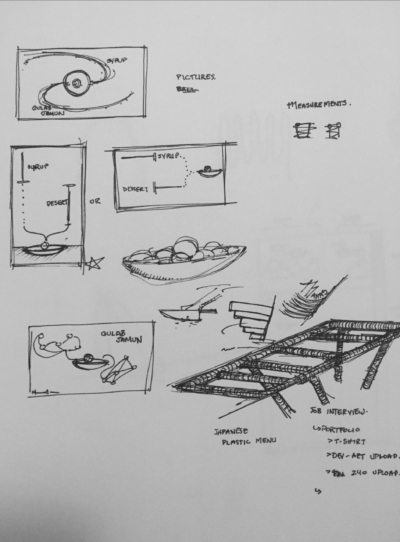 SYRUP
GULAB
JAMUN
PICTURES.
MEASUREMENTS.
SYRUP
DESERT
OR
SYRUP.
DESERT
GULAB
JAMUN
JAPANESE
PLASTIC MENU
JOB INTERVIEW.
↳PORTFOLIO
>T-SHIRT
>DEV-ART UPLOAD.
> 240 UPLOAD.
↳